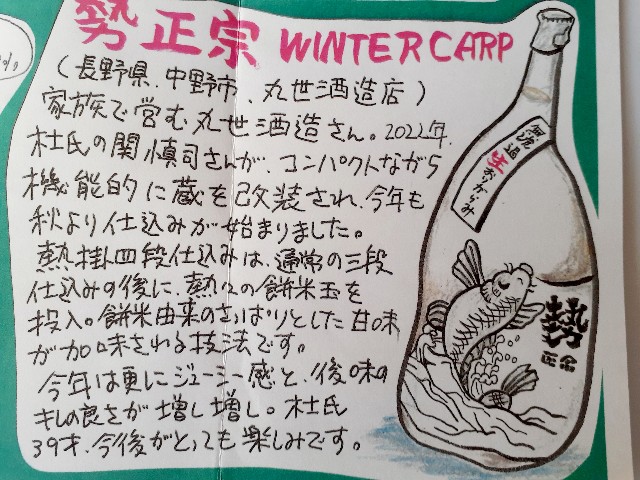 勢正宗 WINTER CARP
(長野県、中野市、丸世酒造店)
家族で営む丸世酒造さん。2022年、
杜氏の関慎司さんが、コンパクトながら
機能的に蔵を改装され、今年も
秋より仕込みが始まりました。
熱掛四段仕込みは、通常の三段
仕込みの後に、熱々の餅米玉を
投入。餅米由来のさっぱりとした甘味
が加味される技法です。
今年は更にジューシー感と、後味の
キレの良さが増し増し。杜氏
39才、今後がとっても楽しみです。
無濾過
生
おりがらみ
勢
正宗
%